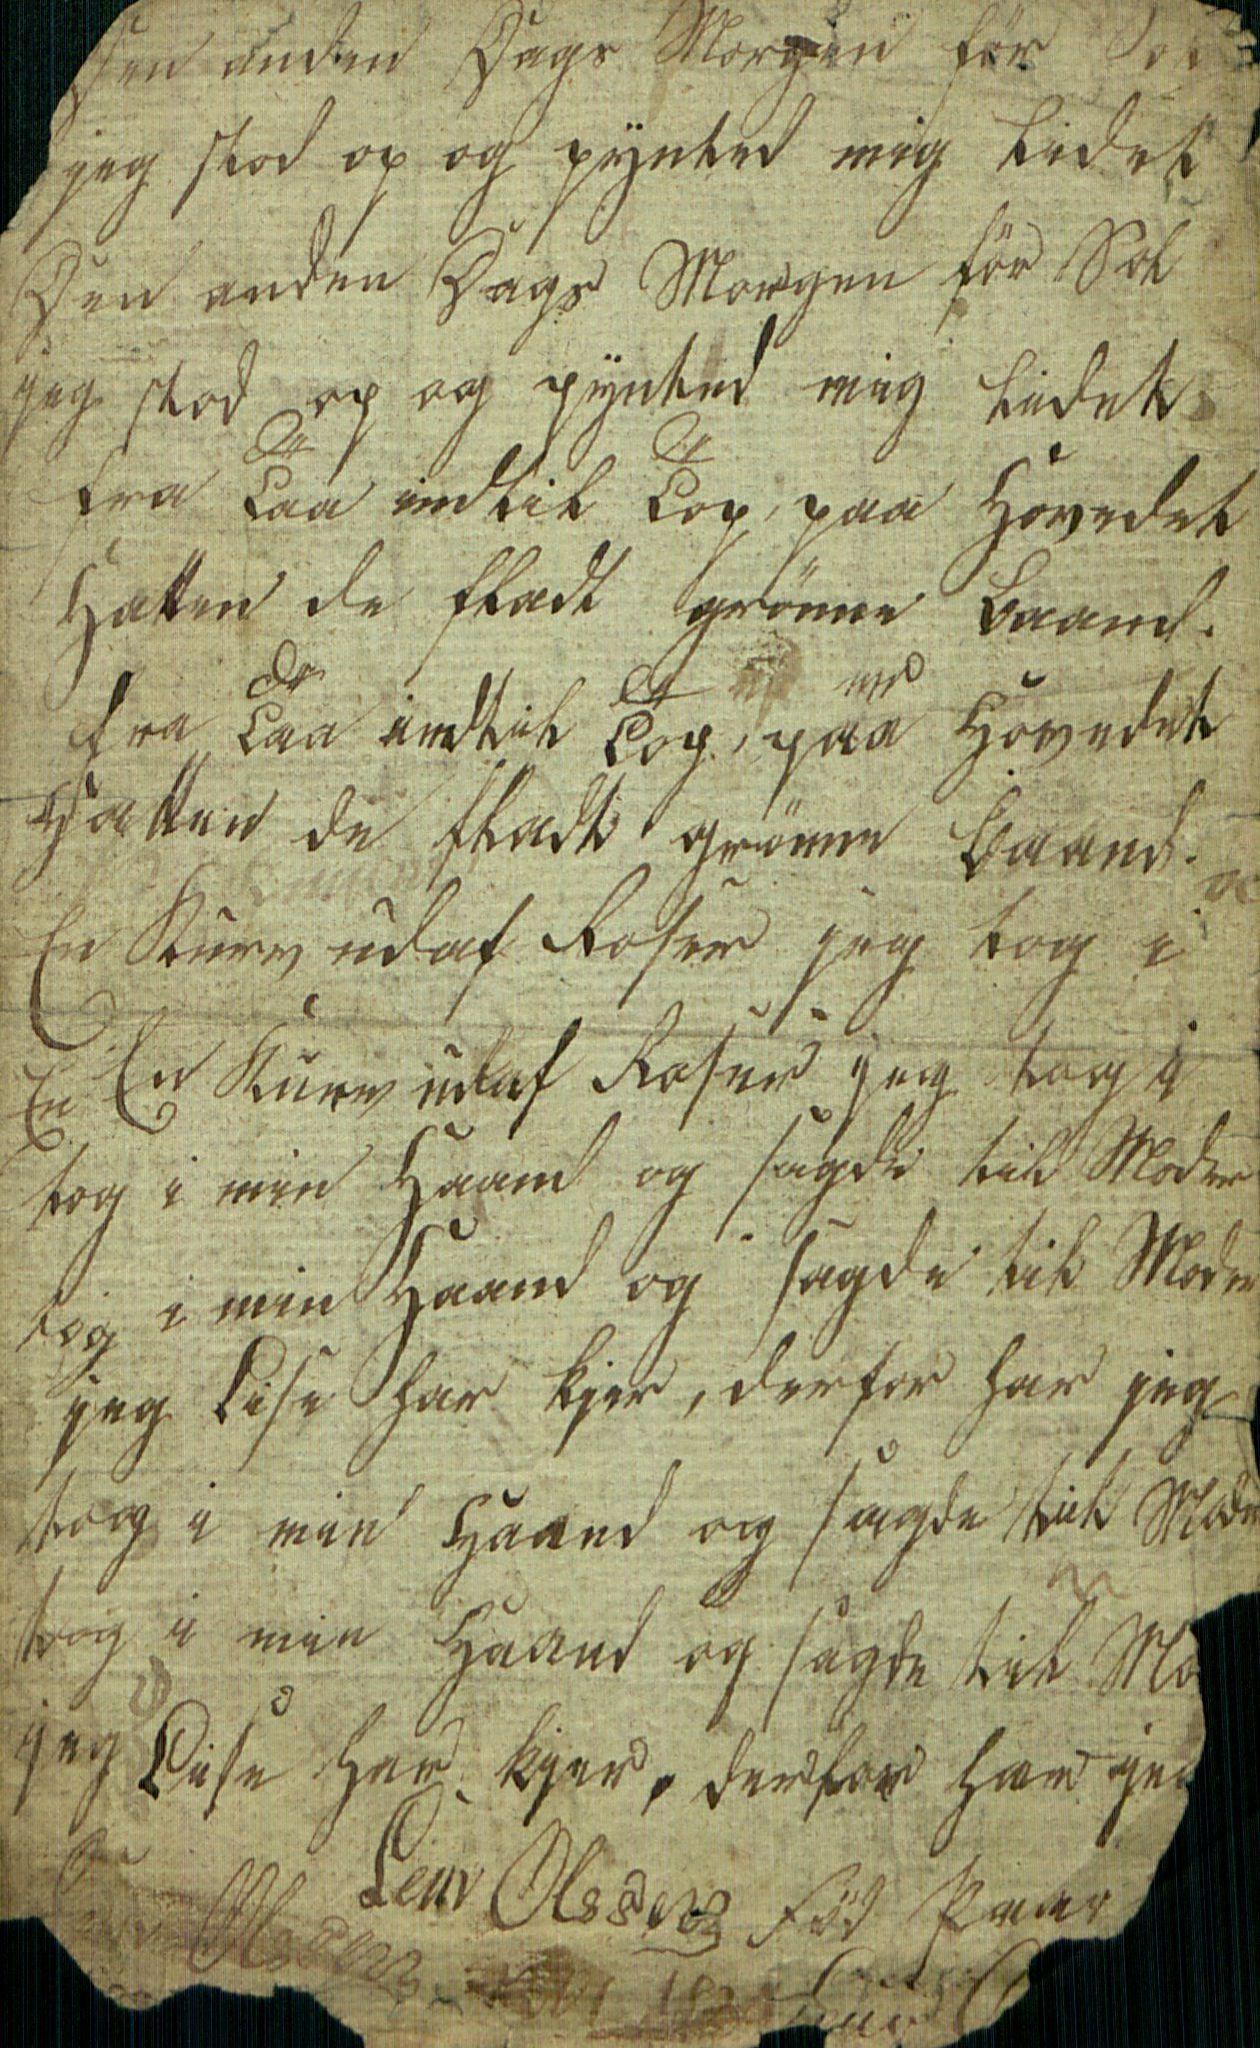 Den anden Dags Morgen før Sol
jeg stod op og pÿnted mig lidet
Den anden Dags Morgen för Sol
jeg stod op og pÿnted mig lidet
fra Taa indtil Top, paa Hovedet
Hatten de fladt grönne Baand.
fra Taa indtil Top, paa Hovedet
Hatten de fladt grönne Baand.
En Kurv udaf Roser jeg tog i
En En Kurv udaf Roser jeg tog i
tog i min Haand og sagde til Moder
tog i min Haand og sagde til Moder
jeg Lise har kjer, derfor har jeg
tog i min Haand og sagde til Mode
tog i min Haand og sagde til Mo
jeg Lise har kjer, derfor har jeg
Olssen
Olssen Föd